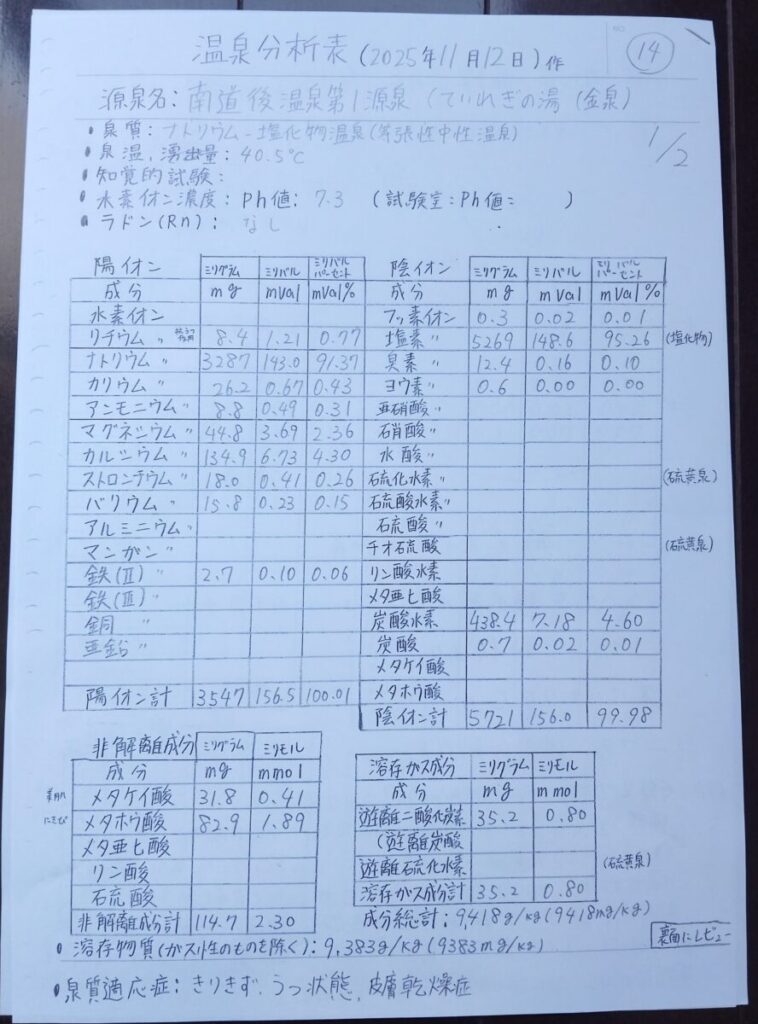 温泉分析表(2025年11月12日)作
NO
14
源泉名:南道後温泉第1源泉(ていれぎの湯(金泉)
1/2
・泉質:ナトリウム-塩化物温泉(等張性中性温泉)
・泉温,湧出量:40.5℃
・知覚的試験:
・水素イオン濃度:Ph値:7.3 (試験室:Ph値: )
・ラドン(Rn):なし
陽イオン ミリグラム ミリバル ミリバルパーセント
成分 mg mval mval%
水素イオン
リチウム〃 8.4 1.21 0.77
ナトリウム〃 3287 143.0 91.37
カリウム〃 26.2 0.67 0.43
アンモニウム〃 8.8 0.49 0.31
マグネシウム〃 44.8 3.69 2.36
カルシウム〃 134.9 6.73 4.30
ストロンチウム〃 18.0 0.41 0.26
バリウム〃 15.8 0.23 0.15
アルミニウム〃
マンガン〃
鉄(Ⅱ)〃 2.7 0.10 0.06
鉄(Ⅲ)〃
銅〃
亜鉛〃
陽イオン計 3547 156.5 100.01
陰イオン ミリグラム ミリバル ミリバルパーセント
成分 mg mval mval%
フッ素イオン 0.3 0.02 0.01
塩素〃 5269 148.6 95.26 (塩化物)
臭素〃 12.4 0.16 0.10
ヨウ素〃 0.6 0.00 0.00
亜硝酸〃
硝酸〃
水酸〃
硫化水素〃 (硫黄泉)
硫酸水素〃
硫酸〃
チオ硫酸 (硫黄泉)
リン酸水素
メタ亜ヒ酸
炭酸水素 438.4 7.18 4.60
炭酸 0.7 0.02 0.01
メタケイ酸
メタホウ酸
陰イオン計 5721 156.0 99.98
非解離成分 ミリグラム ミリモル
成分 mg mmol
美肌 メタケイ酸 31.8 0.41
にきび メタホウ酸 82.9 1.89
メタ亜ヒ酸
リン酸
硫酸
非解離成分計 114.7 2.30
溶存ガス成分 ミリグラム ミリモル
成分 mg mmol
遊離二酸化炭素 35.2 0.80
(遊離炭酸
遊離硫化水素 (硫黄泉)
溶存ガス成分計 35.2 0.80
成分総計:9,418g/kg(9418mg/kg)
・溶存物質(ガス性のものを除く):9,383g/kg(9383mg/kg)
裏面にレビュー
・泉質適応症:きりきず,うつ状態,皮膚乾燥症